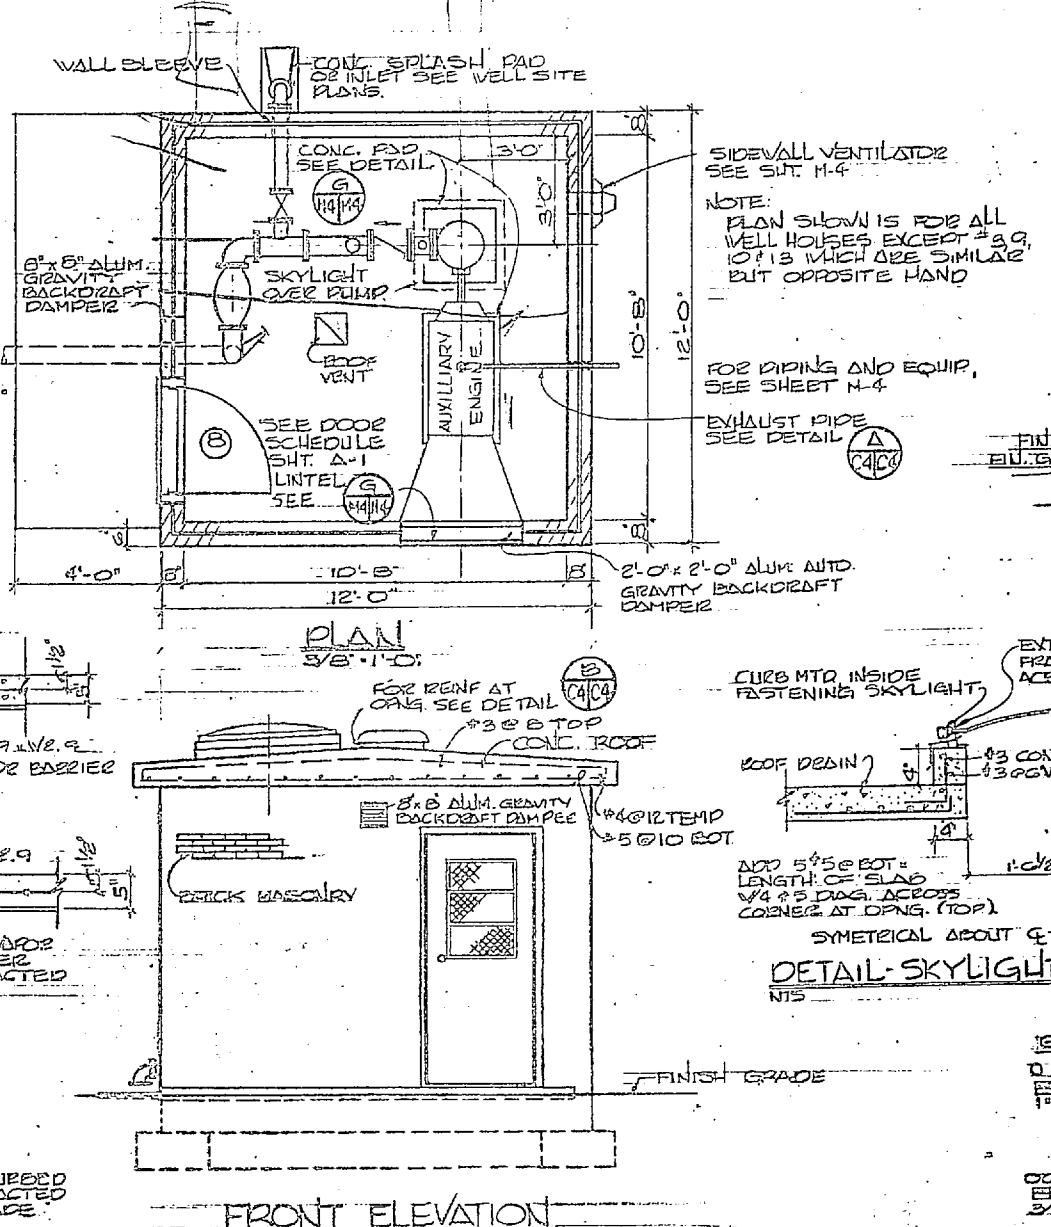 WALL SLEEVE
CONC. SPLASH PAD
OR INLET SEE WELL SITE
PLANS.
CONC. PAD
SEE DETAIL
G
M4 M4
3'0"
3'0"
8"
SIDEWALL VENTILATOR
SEE SHT. M-4
NOTE:
PLAN SHOWN IS FOR ALL
WELL HOUSES EXCEPT # 3, 9,
10 & 13 WHICH ARE SIMILAR
BUT OPPOSITE HAND
8" x 8" ALUM.
GRAVITY
BACKDRAFT
DAMPER
SKYLIGHT
OVER PUMP
ROOF
VENT
AUXILLIARY
ENGINE
10'-8"
12'-0"
FOR PIPING AND EQUIP,
SEE SHEET M-4
EXHAUST PIPE
SEE DETAIL
A
C4 C4
8
SEE DOOR
SCHEDULE
SHT. A-1
LINTEL
SEE
G
M4 M4
8"
6"
4'-0"
8"
10'-8"
8"
12'-0"
2'-0" x 2'-0" ALUM. AUTO.
GRAVITY BACKDRAFT
DAMPER
PLAN
3/8" = 1'-0"
1 1/2"
5"
OR BARRIER
FOR REINF AT
OPNG. SEE DETAIL
B
C4 C4
#3 @ 8 TOP
CONC. ROOF
8" x 8" ALUM. GRAVITY
BACKDRAFT DAMPER
#4 @ 12 TEMP
#5 @ 10 BOT.
BRICK MASONRY
1 1/2"
5"
CURB MTD. INSIDE
FASTENING SKYLIGHT
ROOF DRAIN
4"
#3 CON
4"
1'-0 1/2
ADD 5 #5 @ BOT =
LENGTH OF SLAB
W/4 #5 DIAG. ACROSS
CORNER AT OPNG. (TOP)
SYMETRICAL ABOUT ℄
DETAIL-SKYLIGHT
NTS
FINISH GRADE
FRONT ELEVATION